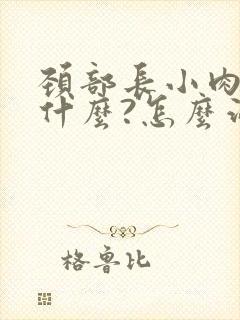 頚部長小肉
什麼?怎麼
格魯比